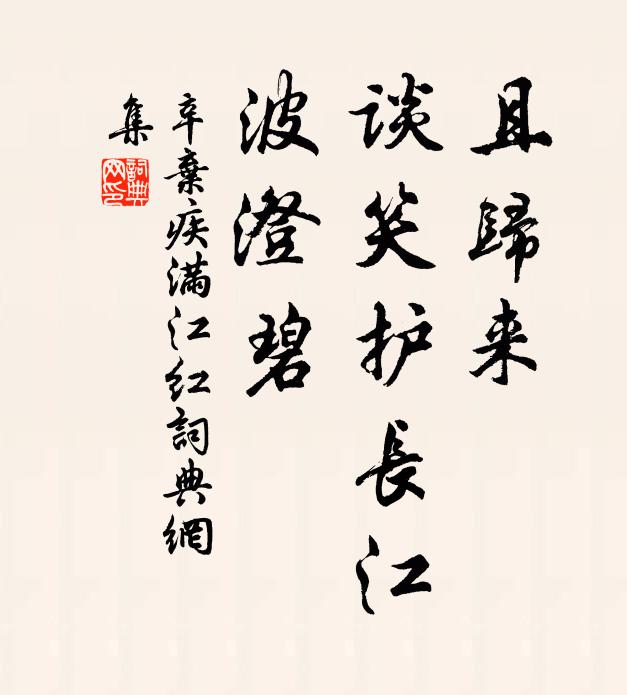 且歸来
谈笑护長江
波澄碧
辛棄疾满江红詞典網
集
詞典
网印